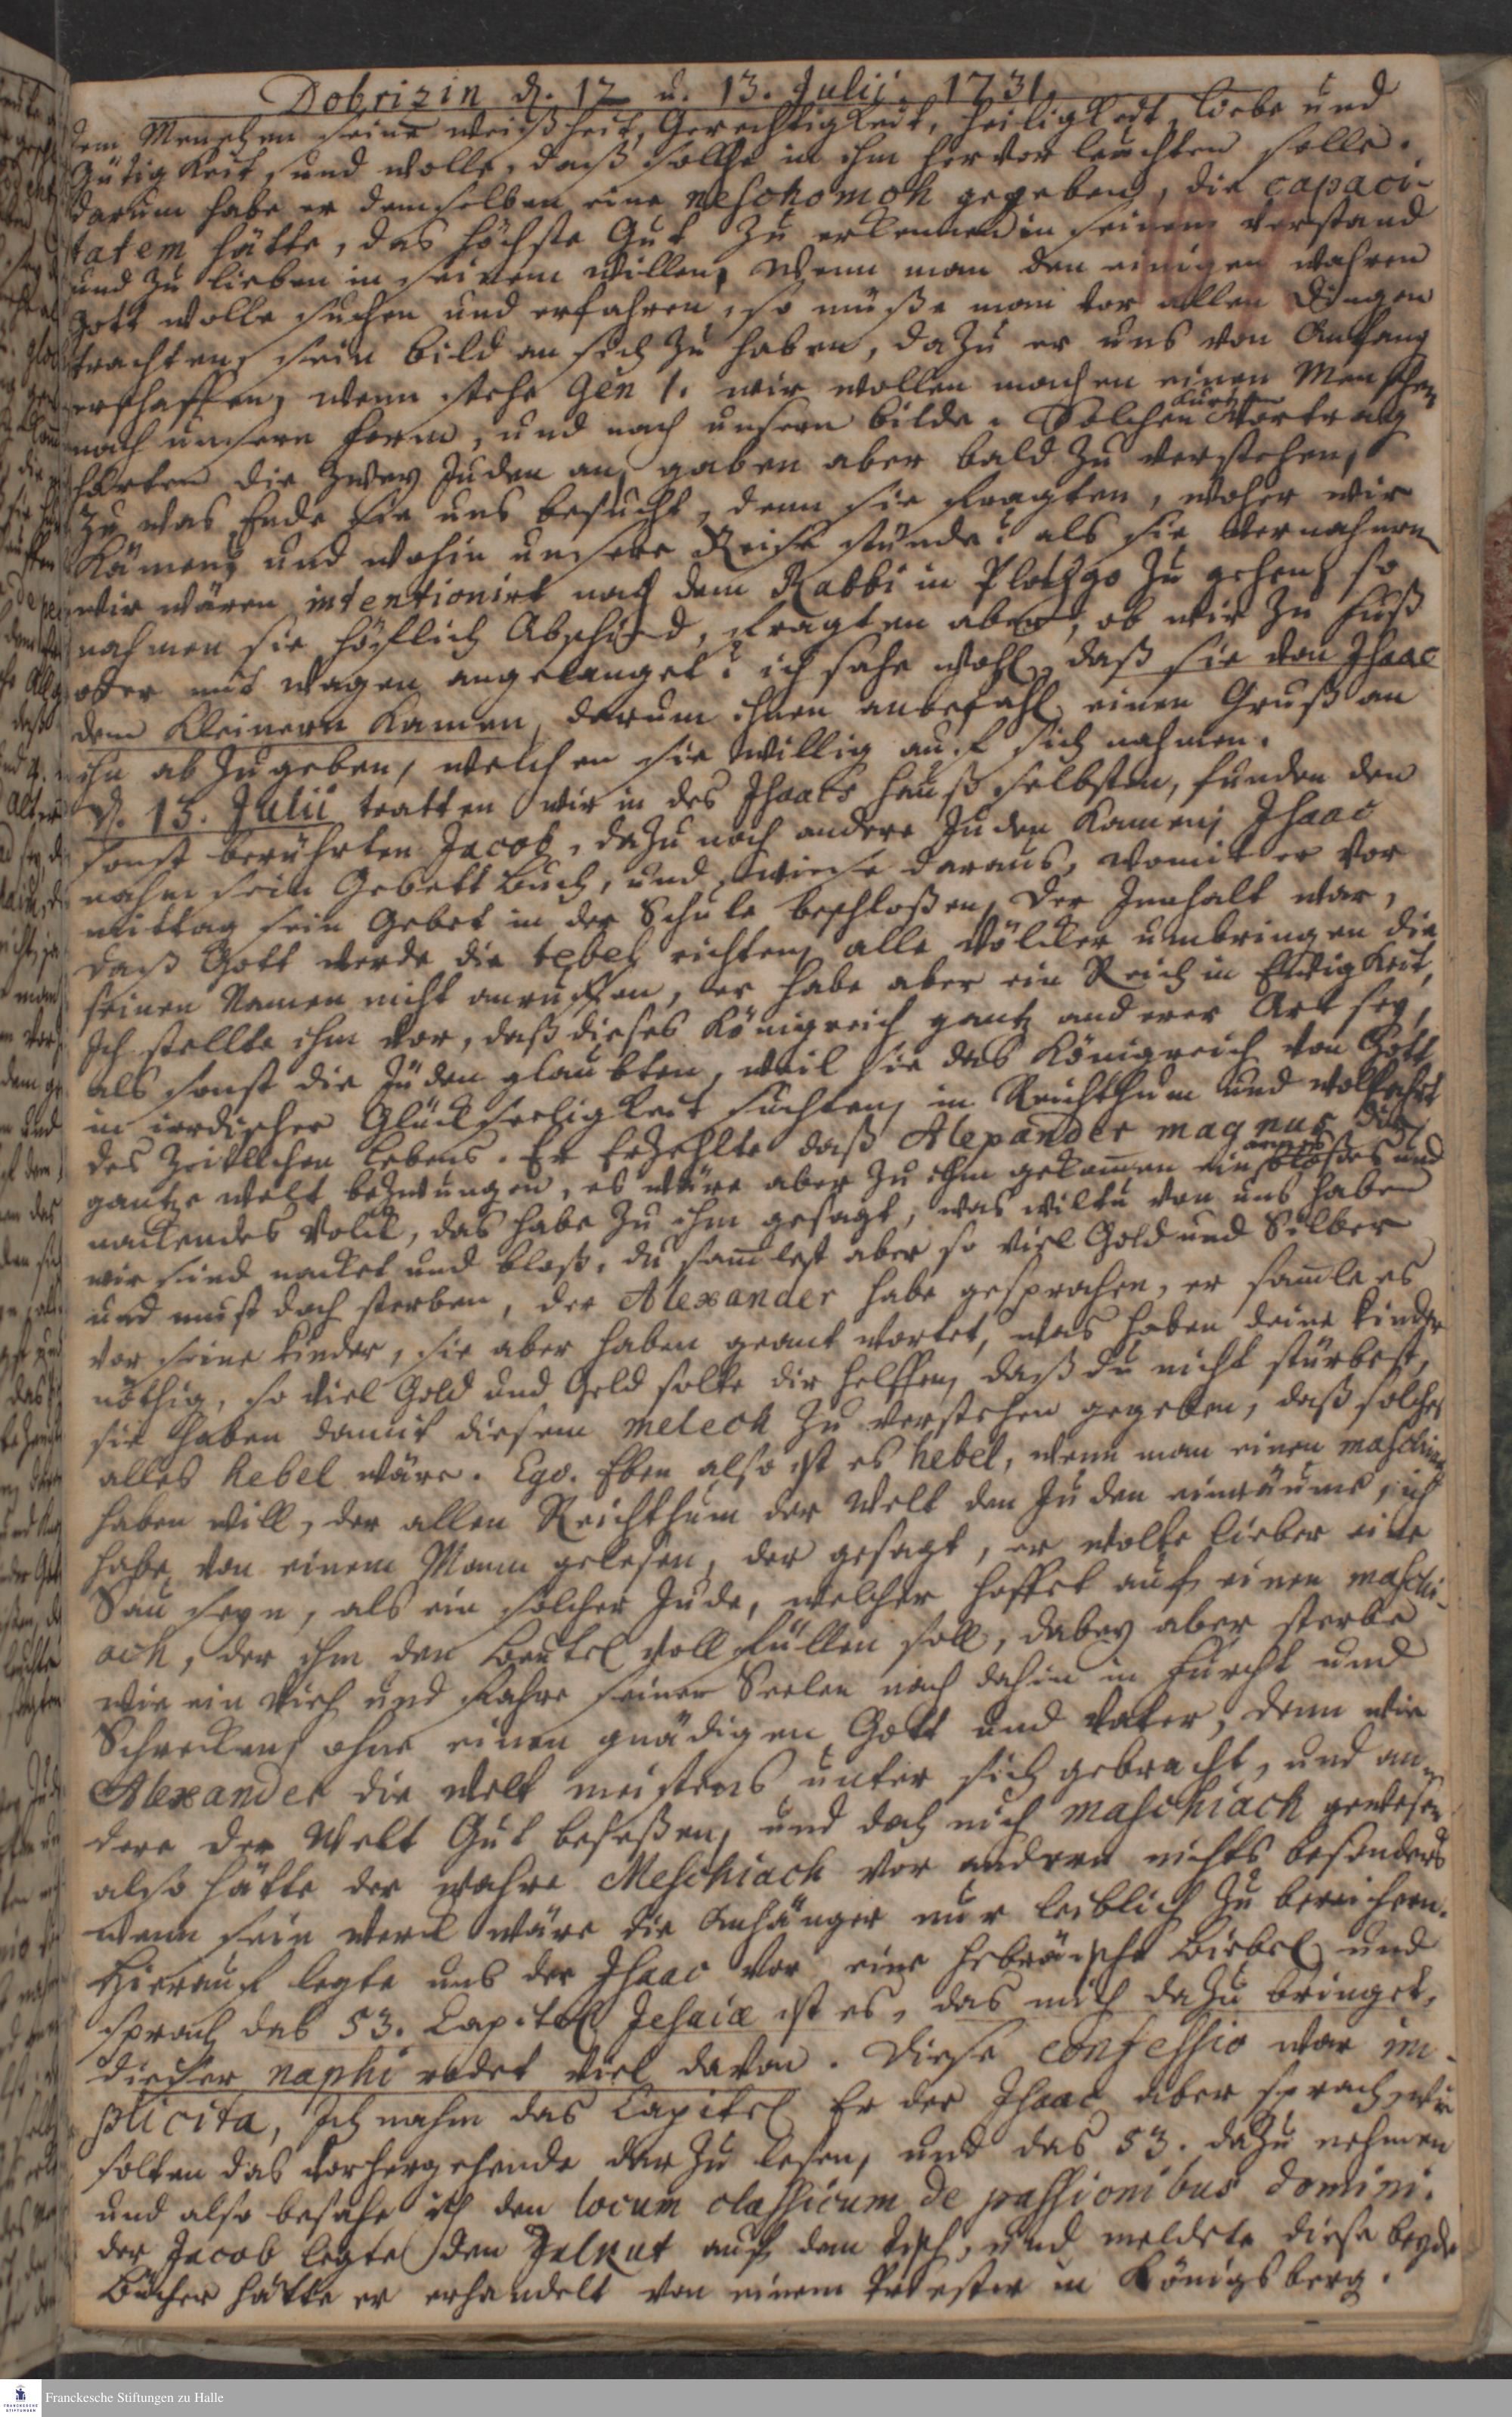 Dobrizin d. 12 u. 13. Julii. 1731.
dem Menschen seine weißheit, Gerechtigkeit, heiligkeit, liebe und
Gütigkeit, und wolle, daß solche in ihm hervor leuchten solle.
darum habe er demselben eine neschomoh gegeben, die capaci-
tatem hätte, das höchste Gut zu erkennen in seinem verstand
und zu lieben in seinem willen, Wenn man den einigen wahren
Gott wolle suchen und erfahren, so müße man vor allen Dingen
trachten, sein bild an sich zu haben, dazu er uns von Anfang
erschaffen, wenn stehe Gen 1. wir wollen machen einen Menschen
nach unsern form, und nach unsern bilde. Solchen kurtzen Vortrag
hörten die zwey Juden an, gaben aber bald zu verstehen,
zu was Ende sie uns besucht, denn sie fragten, woher wir
kämen, und wohin unsere Reise stünde? als sie vernahmen
wir wären intentionirt nach dem Rabbi in Plotzgo zu gehen, so
nahmen sie höflich Abschied, fragten aber, ob wir zu fuß
oder mit wagen angelanget? ich sahe wohl, daß sie von Isaac
dem kleinern kamen, darum ihnen anbefahl einen Gruß an
ihn abzugeben, welchen sie willig auf sich nahmen.
d. 13. Julii tratten wir in des Isaacs hauß selbsten, funden den
sonst berührten Jacob, dazu noch andere Juden kamen, Isaac
nahm sein Gebett buch, und wiese daraus, womit er vor
mittag sein Gebet in der Schule beschloßen, Der Innhalt war,
daß Gott werde die tebel richten, alle Völcker umbringen die
seinen Namen nicht anruffen, er habe aber ein Reich in Ewigkeit,
Ich stellte ihm vor, daß dieses Königreich gantz anderer Art sey,
als sonst die Jüden glaubten, weil sie das Königreich von Gott
in irrdischer Glückseeligkeit suchten, in Reichthum und wollfahrt
des zeitlichen lebens. Er Erzehlte daß Alexander magnus die
gantze welt bezwungen, es wäre aber zu ihm gekommen ein armes bloßes und
nackendes Volck, das habe zu ihm gesagt, was wiltu von uns haben
wir sind nacket und bloß, du sammlest aber so viel Gold und Silber
und must doch sterben, der Alexander habe gesprochen, er sammle es
vor seine kinder, sie aber haben geantwortet, was haben deine kinder
nöthig, so viel Gold und Geld solte dir helffen, daß du nicht stürbest,
sie haben damit diesem melech zu verstehen gegeben, daß solches
alles hebel wäre. Ego. Eben also ist es hebel, wenn man einen maschiach
haben will, der allen Reichthum der Welt den Juden einräume, ich
habe von einem Mann gelesen, der gesagt, er wolte lieber eine
Sau seyn, als ein solcher Jude, welcher hoffet auf einen maschi-
ach, der ihm den beutel voll füllen soll, dabey aber sterbe
wie ein vieh und fahre seiner Seelen nach dahin in furcht und
Schrecken, ohne einen gnädigen Gott und vater, denn wie
Alexander die welt meistens unter sich gebracht, und an-
dere der Welt Gut beseßen, und doch nich maschiach gewesen
also hätte der wahre Meschiach vor andern nichts besonders
wenn sein werck wäre die Anhänger nur leiblich zu bereichern.
Hierauf legte uns der Isaac vor eine hebräische biebel und
sprach das 53. Capitel Jesaiæ ist es, das mich dazu bringet,
dieser naphi redet viel davon. Diese confessio war im-
plicita, Ich nahm das Capitel Er der Isaac aber sprach, wir
solten das vorhergehende darzu lesen, und das 53. dazu nehmen
und also besahe ich den locum classicum de passionibus domini.
der Jacob legte den Jalkut auf den tisch, und meldete diese beyde
bücher hätte er erhandelt von einem Priester in Königsberg.
Franckesche Stiftungen zu Halle